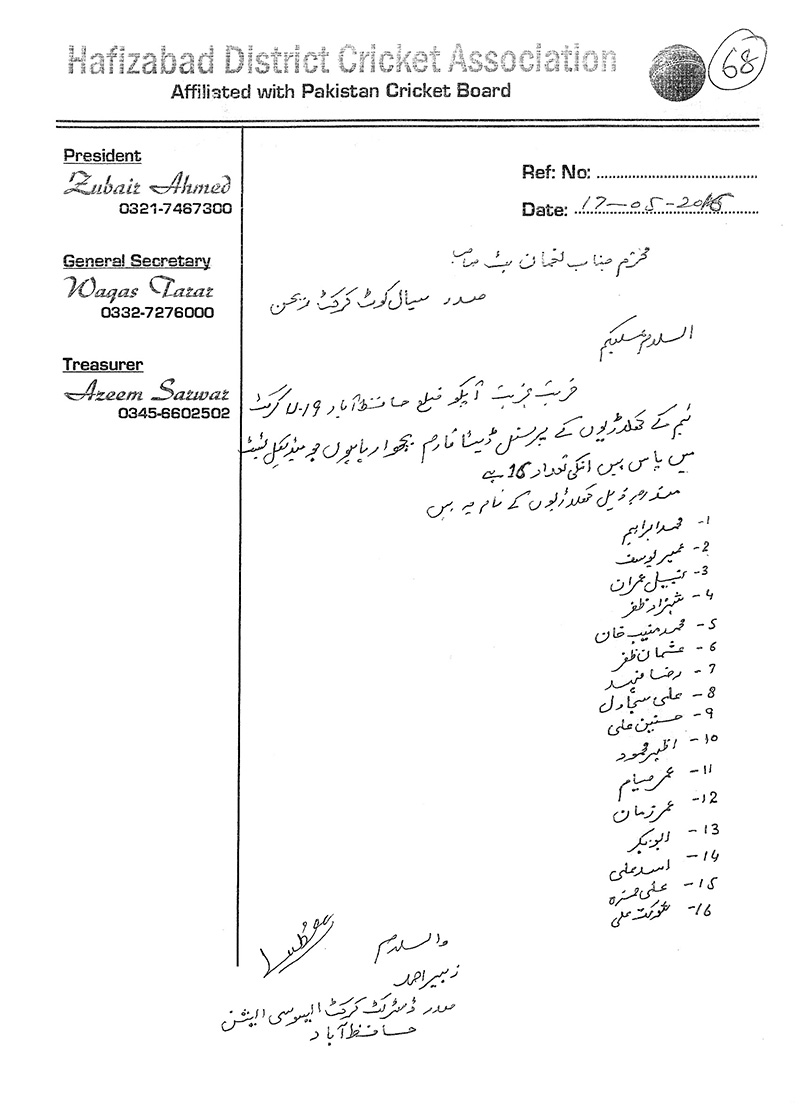 Hafizabad District Cricket Association
68
Affiliated with Pakistan Cricket Board
President
Zubair Ahmed
0321-7467300
General Secretary
Waqas Tarar
0332-7276000
Treasurer
Azeem Sarwar
0345-6602502
Ref: No:
Date: 17-05-2016
محترم جناب نعمان بٹ صاحب
صدر سیالکوٹ کرکٹ ریجن
السلام علیکم
آپکو ضلع حافظ آباد U-19 کرکٹ
ٹیم کے کھلاڑیوں کے پرسنل ڈیٹا فارم بھجوا رہا ہوں جو میڈیکل ٹیسٹ
میں پاس ہیں انکی تعداد 16 ہے
مندرجہ ذیل کھلاڑیوں کے نام یہ ہیں
1- محمد ابراہیم
2- عمیر یوسف
3- نبیل عمران
4- شہزاد ظفر
5- محمد منیب خان
6- عثمان ظفر
7- رضا
8- علی سجاول
9- حسنین علی
10- اظہر محمود
11- عمر صیام
12- عمر زمان
13- ابوبکر
14- اسد علی
15- علی حمزہ
16- شوکت علی
والسلام
زبیر احمد
صدر ڈسٹرکٹ کرکٹ ایسوسی ایشن
حافظ آباد